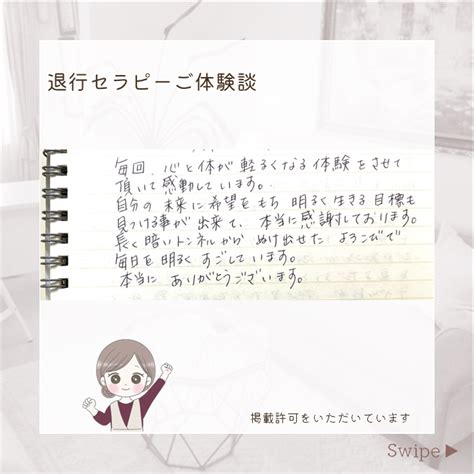 退行セラピーご体験談
毎回、心と体が軽るくなる体験をさせて
頂いて感動しています。
自分の未来に希望をもち 明るく生きる目標も
見つける事が出来て、本当に感謝しております。
長く暗いトンネルから ぬけ出せた よろこびで
毎日を明るく すごしています。
本当に ありがとうございます。
掲載許可をいただいています
Swipe